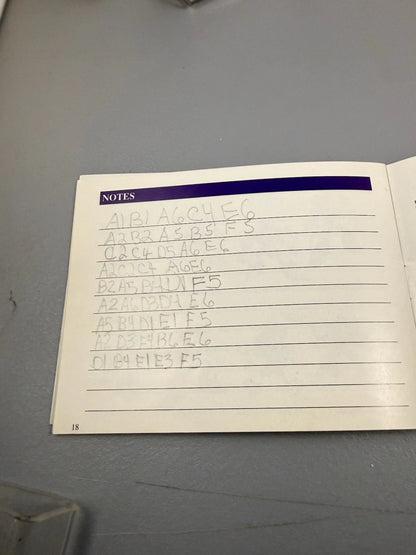 NOTES
A1 B1 A6 C4 E6
A2 B2 A5 B5 F5
C2 C4 D5 A6 E6
A2 C2 C4 A6 E6
B2 A5 B4 D1 F5
A2 A6 D3 D4 E6
A5 B4 D1 E1 F5
A2 D3 E4 B6 E6
D1 B4 E1 E3 F5
18